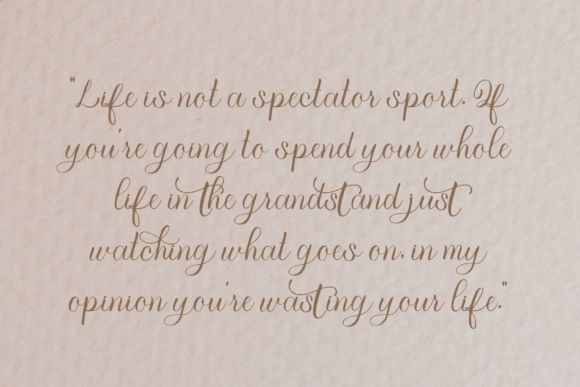 "Life is not a spectator sport. If
you're going to spend your whole
life in the grandstand just
watching what goes on. in my
opinion you're wasting your life."